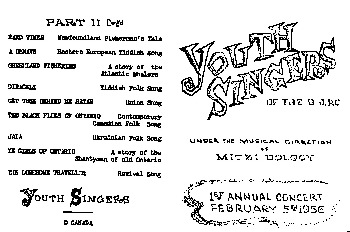 PART II Cont'd
HARD TIMES Newfoundland Fisherman's Tale
A Eastern European Yiddish Song
GREENLAND FISHERIES A story of the
Atlantic Whalers
Yiddish Folk Song
GET THEE BEHIND ME SATAN Union Song
THE BLACK FLIES OF ONTARIO Contemporary
Canadian Folk Song
Ukrainian Folk Song
YE GIRLS OF ONTARIO A story of the
Shantymen of old Ontario
THE LONESOME TRAVELLER Revival Song
YOUTH SINGERS
O CANADA
YOUTH
SINGERS
OF THE
UNDER THE MUSICAL DIRECTION
OF
MITZI DOLOGY
1ST ANNUAL CONCERT
FEBRUARY 5TH 1956